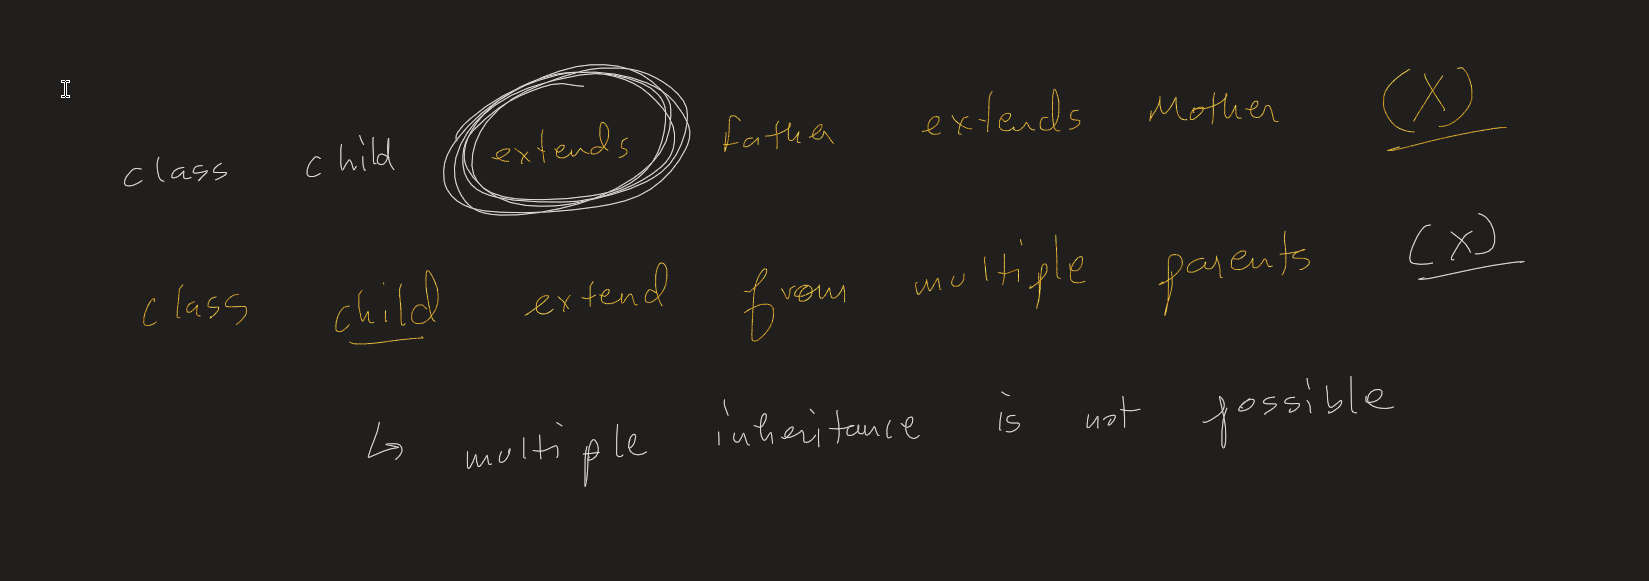 class child extends father extends Mother (X)
class child extend from multiple parents (X)
↳ multiple inheritance is not possible